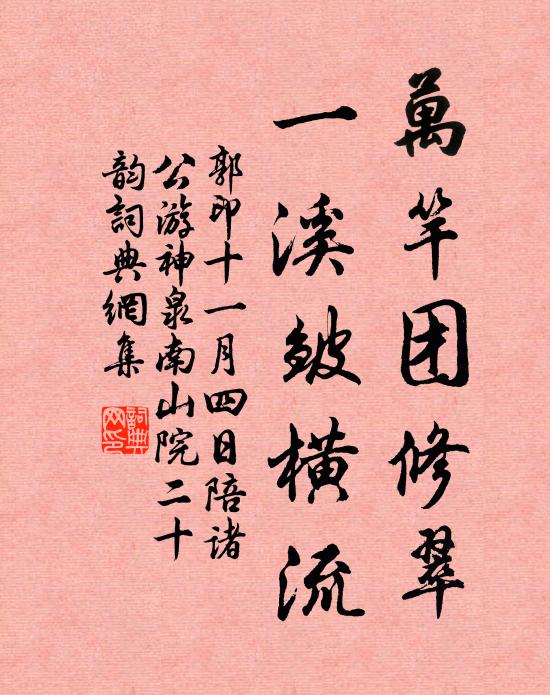 萬竿团修翠
一溪皱横流
郭印十一月四日陪诸
公游神泉南山院二十
韵詞典網集
詞典
网印